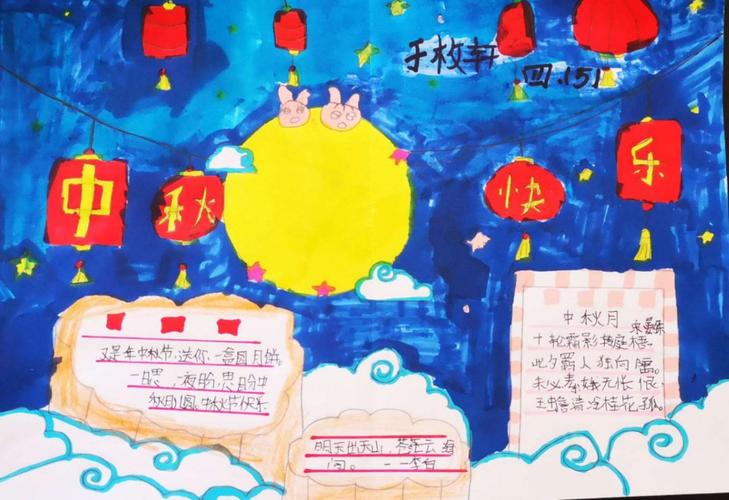 于枚轩
四.(5)
中秋快乐
又是年中秋节,送你一盒圆月饼。
一夜盼,思盼中
中秋节快乐
出天山,苍茫云海
间。——李白
中秋月 宋晏殊
十轮霜影转庭梧。
此夕羁人独向隅。
未必素娥无怅恨,
玉蟾清冷桂花孤。